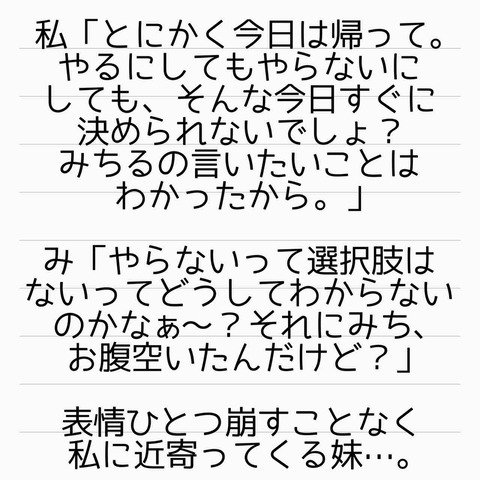 私「とにかく今日は帰って。
やるにしてもやらないに
しても、そんな今日すぐに
決められないでしょ？
みちるの言いたいことは
わかったから。」
み「やらないって選択肢は
ないってどうしてわからない
のかなぁ〜？それにみち、
お腹空いたんだけど？」
表情ひとつ崩すことなく
私に近寄ってくる妹…。